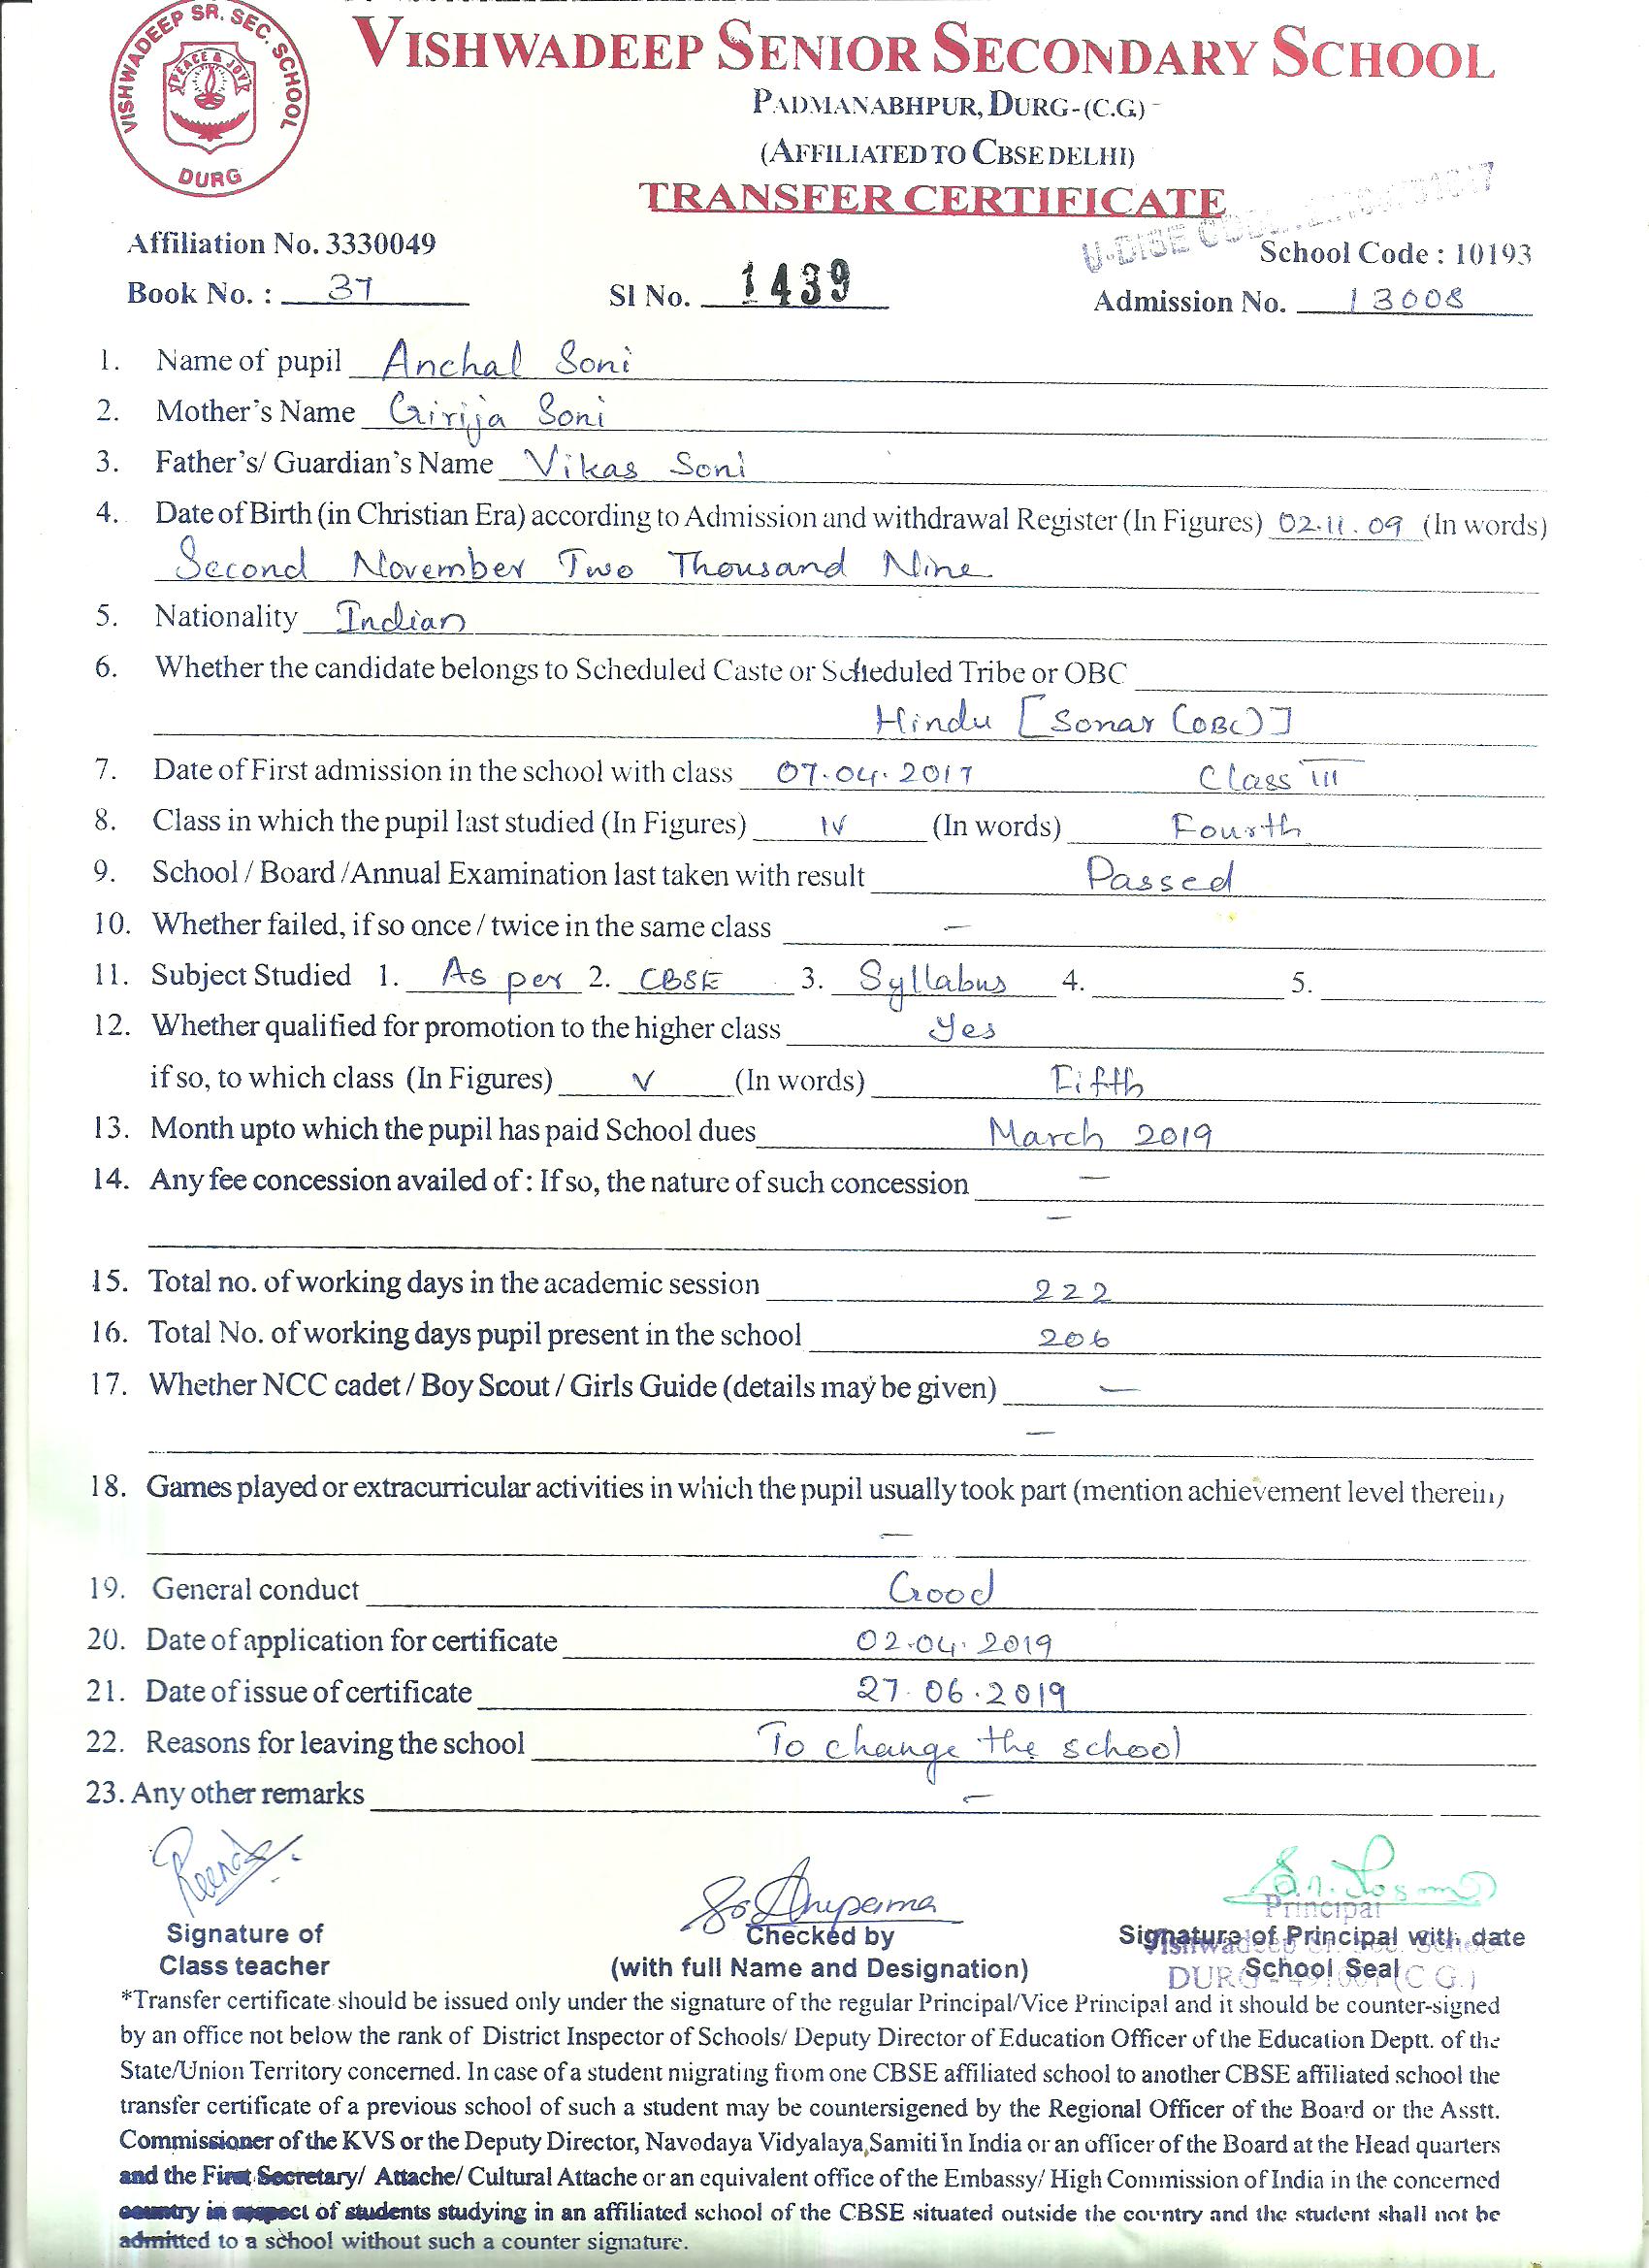 VISHWADEEP SR. SEC. SCHOOL
PEACE & JOY
DURG
VISHWADEEP SENIOR SECONDARY SCHOOL
PADMANABHPUR, DURG-(C.G.)
(AFFILIATED TO CBSE DELHI)
TRANSFER CERTIFICATE
U-DISE CODE
Affiliation No. 3330049 School Code : 10193
Book No. : 37 Sl No. 1439 Admission No. 13008
1. Name of pupil Anchal Soni
2. Mother's Name Girija Soni
3. Father's/ Guardian's Name Vikas Soni
4. Date of Birth (in Christian Era) according to Admission and withdrawal Register (In Figures) 02.11.09 (In words)
Second November Two Thousand Nine
5. Nationality Indian
6. Whether the candidate belongs to Scheduled Caste or Scheduled Tribe or OBC
Hindu [Sonar (OBC)]
7. Date of First admission in the school with class 07.04.2017 Class III
8. Class in which the pupil last studied (In Figures) IV (In words) Fourth
9. School / Board /Annual Examination last taken with result Passed
10. Whether failed, if so once / twice in the same class –
11. Subject Studied 1. As per 2. CBSE 3. Syllabus 4. 5.
12. Whether qualified for promotion to the higher class Yes
if so, to which class (In Figures) V (In words) Fifth
13. Month upto which the pupil has paid School dues March 2019
14. Any fee concession availed of : If so, the nature of such concession –
–
15. Total no. of working days in the academic session 222
16. Total No. of working days pupil present in the school 206
17. Whether NCC cadet / Boy Scout / Girls Guide (details may be given) –
–
18. Games played or extracurricular activities in which the pupil usually took part (mention achievement level therein)
–
19. General conduct Good
20. Date of application for certificate 02.04.2019
21. Date of issue of certificate 27.06.2019
22. Reasons for leaving the school To change the school
23. Any other remarks –
Principal
Signature of Checked by Signature of Principal with date
Class teacher (with full Name and Designation) School Seal
DURG (C G.)
*Transfer certificate should be issued only under the signature of the regular Principal/Vice Principal and it should be counter-signed
by an office not below the rank of District Inspector of Schools/ Deputy Director of Education Officer of the Education Deptt. of the
State/Union Territory concerned. In case of a student migrating from one CBSE affiliated school to another CBSE affiliated school the
transfer certificate of a previous school of such a student may be countersigened by the Regional Officer of the Board or the Asstt.
Commissioner of the KVS or the Deputy Director, Navodaya Vidyalaya, Samiti in India or an officer of the Board at the Head quarters
and the First Secretary/ Attache/ Cultural Attache or an equivalent office of the Embassy/ High Commission of India in the concerned
country in respect of students studying in an affiliated school of the CBSE situated outside the country and the student shall not be
admitted to a school without such a counter signature.